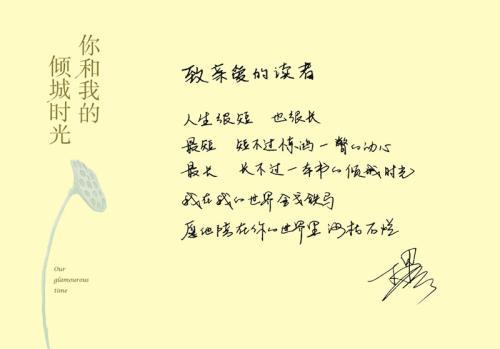 你和我的
倾城时光
致亲爱的读者
人生很短 也很长
最短 短不过惊鸿一瞥的动心
最长 长不过一本书的倾城时光
我在我的世界金戈铁马
愿他陪在你的世界里 海枯石烂
丁墨
Our
glamourous
time